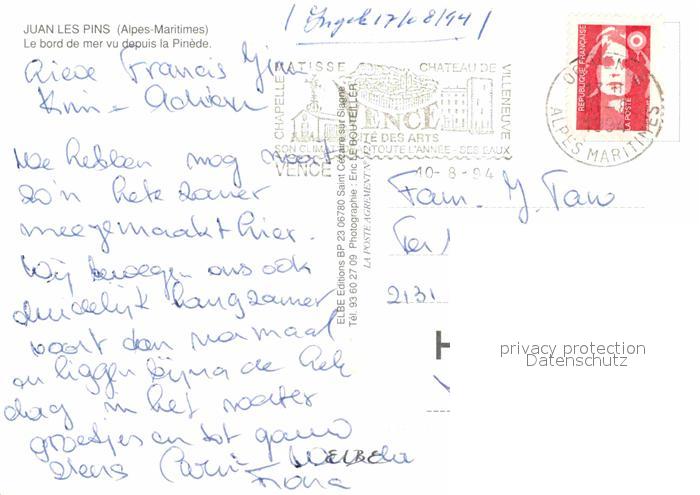 JUAN LES PINS (Alpes-Maritimes)
Le bord de mer vu depuis la Pinède.
17/08/94
Francis
Kim - Adrien
We hebben nog nooit
zo'n hete zomer
meegemaakt hier.
Wij bewegen ons ook
duidelijk langzamer
voort dan normaal
en liggen bijna de hele
dag in het water
groetjes en tot gauw
Fiona
CHAPELLE MATISSE CHATEAU DE VILLENEUVE
VENCE
CITÉ DES ARTS
SON CLIMAT TOUTE L'ANNÉE - SES EAUX
VENCE
10-8-94
ALPES MARITIMES
REPUBLIQUE FRANÇAISE
LA POSTE
ELBE Editions BP 23 06780 Saint Cézaire sur Siagne
Tél. 93 60 27 09 Photographie : Eric LE BOUTEILLER
LA POSTE AGREMENT N°
ELBE
Fam. J. Tan
2131
H
privacy protection
Datenschutz